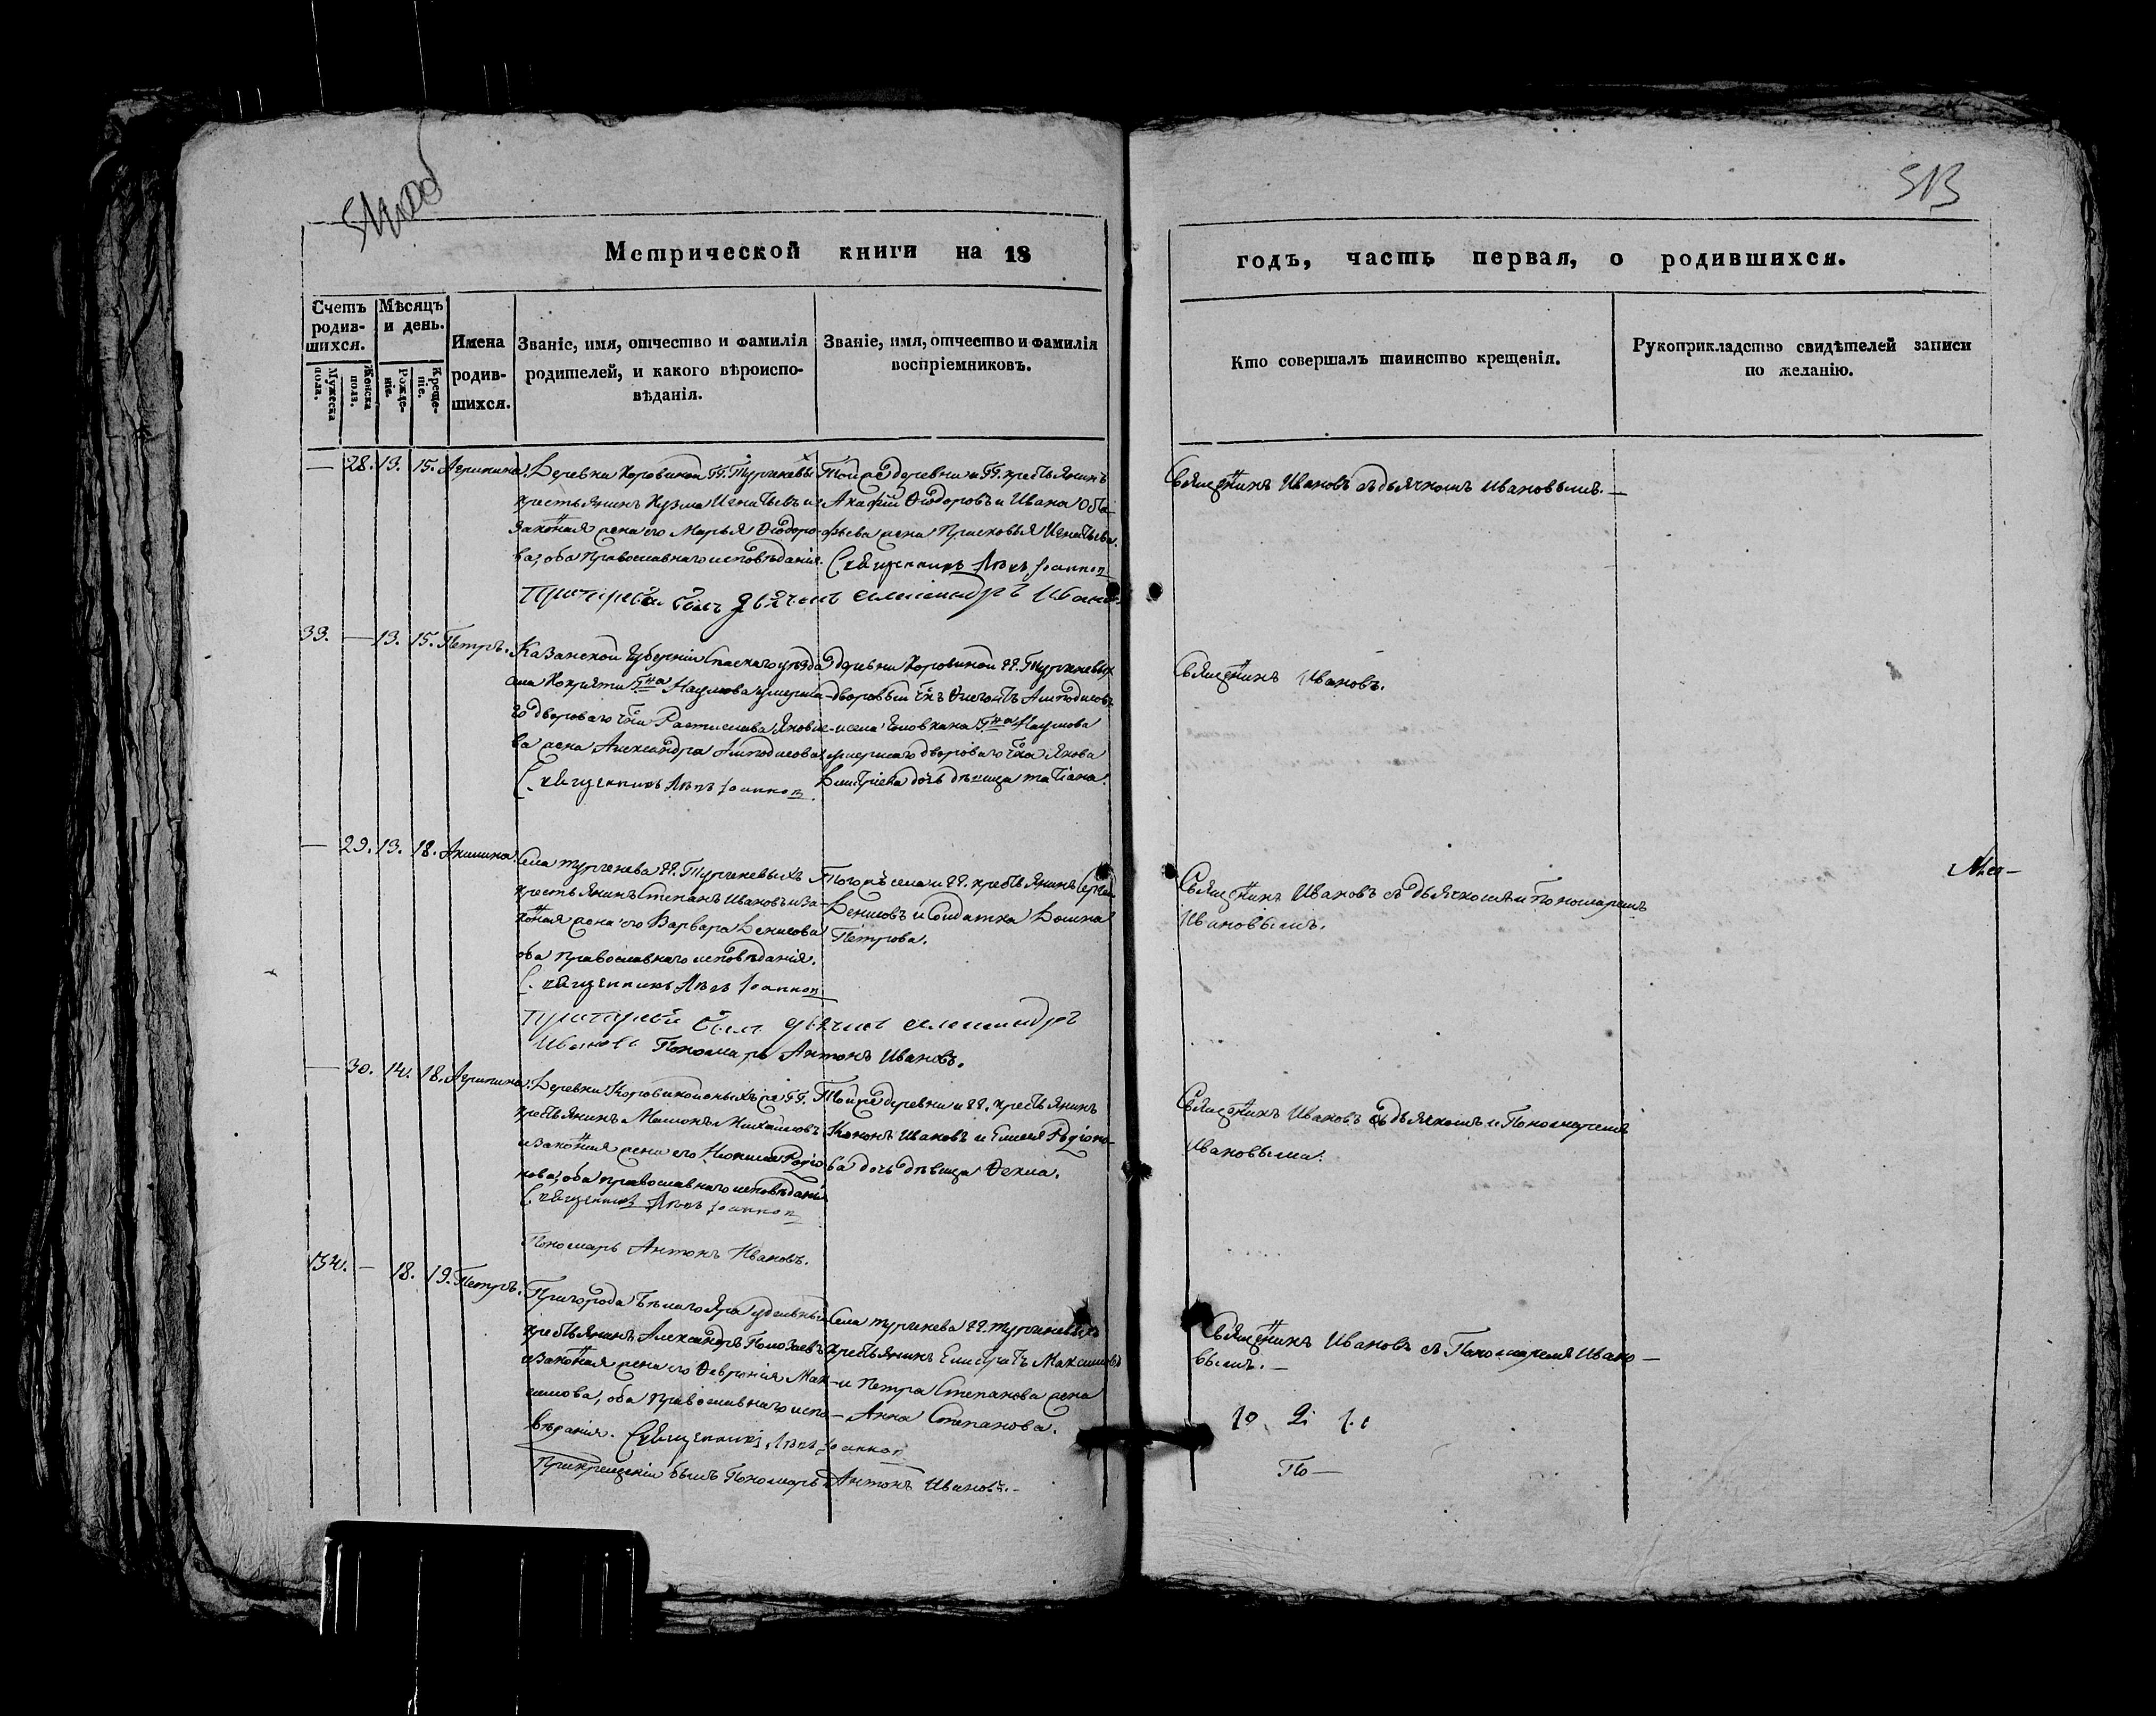 513
Метрической книги на 18
годъ, часть первая, о родившихся.
Счетъ родив-шихся.
Мужеска пола.
Женска пола.
Мѣсяцъ и день.
Рожде-нie.
Креще-нie.
Имена родив-шихся.
Званiе, имя, отчество и фамилiя
родителей, и какого вѣроиспо-
вѣданiя.
Званiе, имя, отчество и фамилiя
воспрiемниковъ.
Кто совершалъ таинство крещенiя.
Рукоприкладство свидѣтелей записи
по желанiю.
— 28. 13. 15. Агрипина.
Деревни Коровиной ГГ. Тургеневыхъ
крестьянинъ Кузма Игнатьевъ и
законная жена его Марья Ѳодоро-
ва, оба православнаго исповѣданiя.
Тойже деревни и ГГ. крестьянинъ
Ѳодоровъ и Ивана
жена Прасковья Игнатьева.
Священникъ Левъ Iоанновъ
При крещенiи былъ дьячекъ Александръ Ивановъ
Священникъ Ивановъ съ дьячкомъ Ивановымъ. —
33. — 13. 15. Петръ.
Казанской губернiи Спаскаго уѣзда
села Г-на Наумова умерша-
го дворового Яковле-
ва жена Александра
Священникъ Левъ Iоанновъ
Деревни Коровиной ГГ. Тургеневыхъ
дворовый
и села Г-на Наумова
умершаго двороваго Якова
Дмитрiева дочь дѣвица Татiана.
Священникъ Ивановъ.
— 29. 13. 18. Акилина.
Села Тургенева ГГ. Тургеневыхъ
крестьянинъ Степанъ Ивановъ и за-
конная жена его Варвара Денисова
оба православнаго исповѣданiя.
Священникъ Левъ Iоанновъ
При крещенiи былъ дьячекъ Александръ
Ивановъ Пономарь Антонъ Ивановъ.
Тогожъ села и ГГ. крестьянинъ Сергей
Денисовъ и Солдатка Домна
Петрова.
Священникъ Ивановъ съ дьячкомъ и Пономаремъ
Ивановымъ.
— 30. 14. 18. Агрипина.
Деревни Коровиной оныхъ же ГГ.
крестьянинъ Михаиловъ
и законная жена его Родiо-
нова, оба православнаго исповѣданiя
Священникъ Левъ Iоанновъ
Пономарь Антонъ Ивановъ.
Тойже деревни и ГГ. крестьянинъ
Кононъ Ивановъ и Родiоно-
ва дочь дѣвица Ѳекла.
Священникъ Ивановъ съ дьячкомъ и Пономаремъ
Ивановыми.
34. — 18. 19. Петръ.
Пригорода Бѣлаго Яра удѣльный
крестьянинъ Александръ
и законная жена его Ѳеврония Мак-
симова, оба православнаго испо-
вѣданiя. Священникъ Левъ Iоанновъ
При крещенiи былъ Пономарь Антонъ Ивановъ. —
Села Тургенева ГГ. Тургеневыхъ
крестьянинъ Максимовъ
и Петра Степанова жена
Анна Степанова.
Священникъ Ивановъ съ Пономаремъ Ивано-
вымъ. —
По —